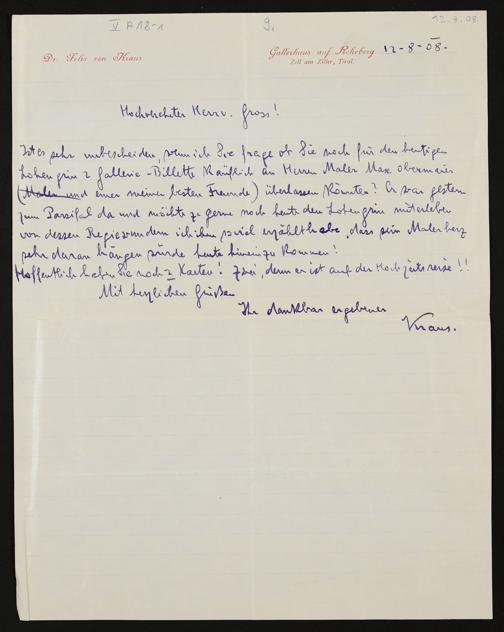 V A 18-1 9. 12.8.08
Dr. Felix von Kraus
Gallerhaus auf Rohrberg 12-8-08.
Zell am Ziller, Tirol.
Hochverehrter Herr v. Gross!
Ist es sehr unbescheiden, wenn ich Sie frage ob Sie noch für den heutigen
Lohengrin 2 Gallerie-Billetts käuflich an Herrn Maler Max Obermeier
(Maler und einer meiner besten Freunde) überlassen könnten? Er war gestern
zum Parsifal da und möchte zu gerne noch heute den Lohengrin miterleben
von dessen Regiewundern ich ihm soviel erzählt habe, dass sein Malerherz
sehr daran hängen würde heute hineinzukommen!
Hoffentlich haben Sie noch 2 Karten! Zwei, denn er ist auf der Hochzeitsreise!!
Mit herzlichen Grüßen
Ihr dankbar ergebener
Kraus.